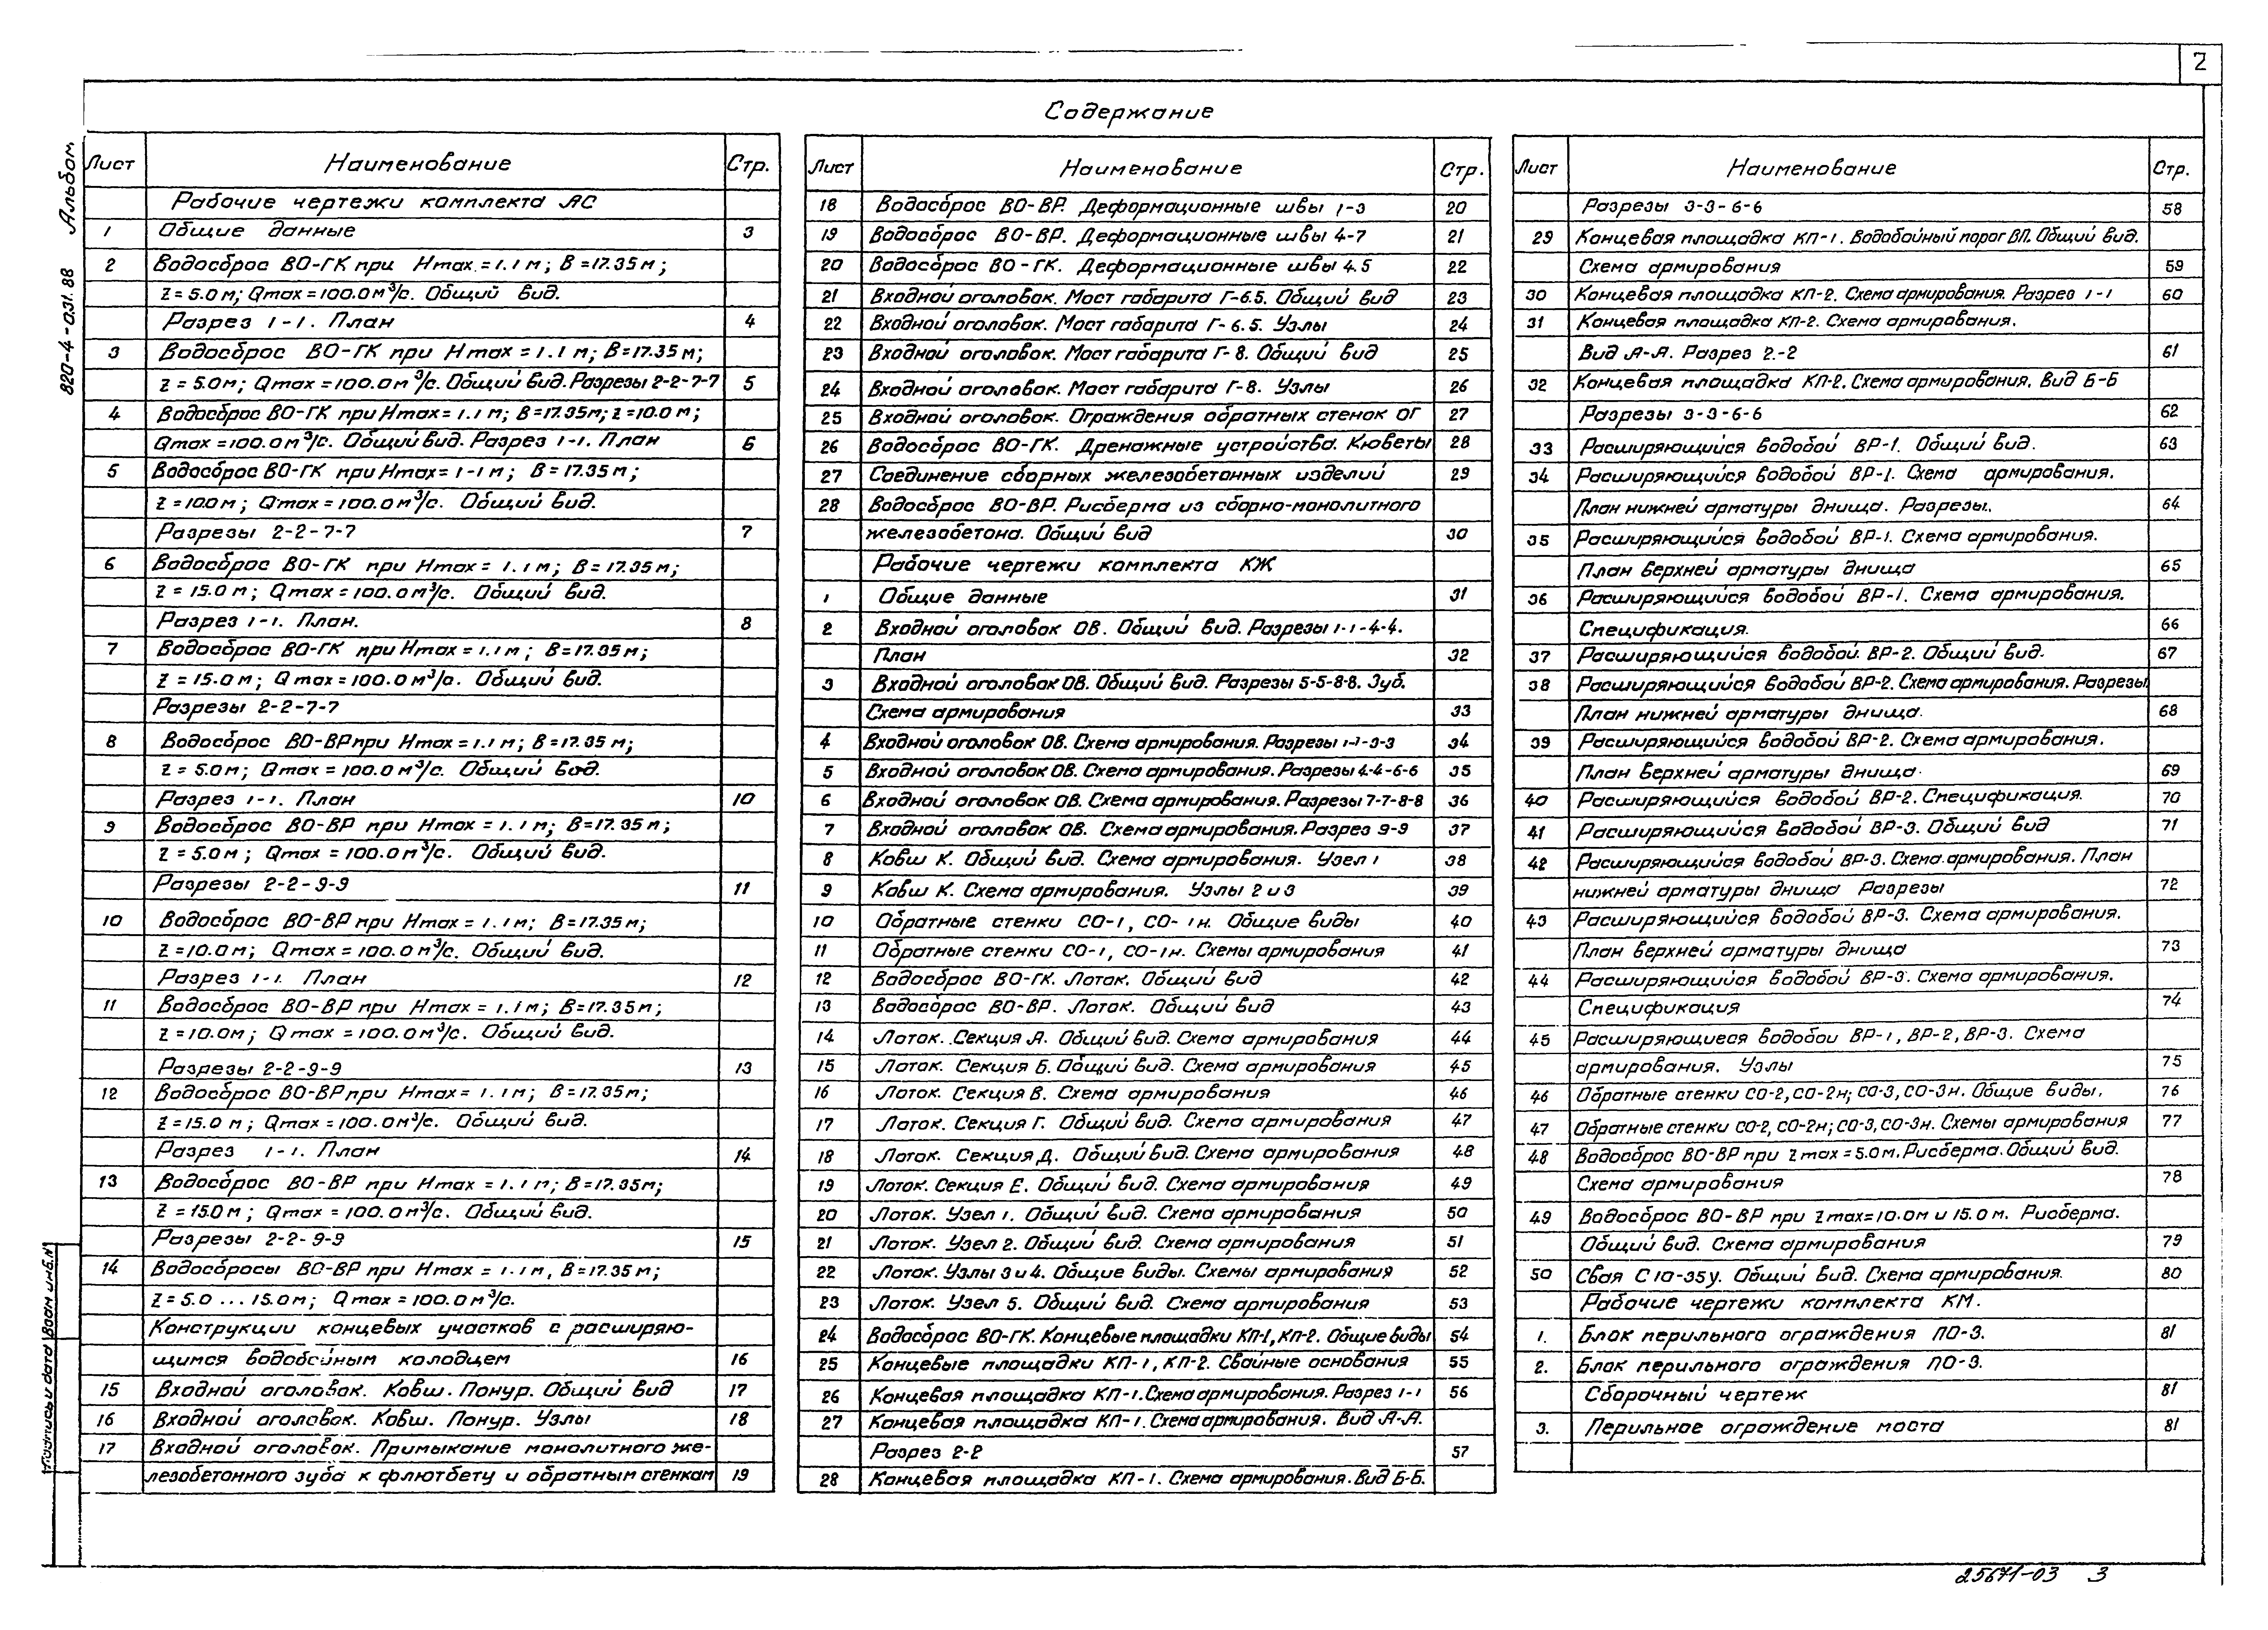 2
Содержание
820-4-031.88 Альбом
Лист Наименование Стр.
Рабочие чертежи комплекта АС
1 Общие данные 3
2 Водосброс ВО-ГК при Hmax.=1.1м; В=17.35м;
Z=5.0м; Qmax=100.0м³/с. Общий вид.
Разрез 1-1. План 4
3 Водосброс ВО-ГК при Hmax=1.1м; В=17.35м;
Z=5.0м; Qmax=100.0м³/с. Общий вид. Разрезы 2-2-7-7 5
4 Водосброс ВО-ГК при Hmax=1.1м; В=17.35м; Z=10.0м;
Qmax=100.0м³/с. Общий вид. Разрез 1-1. План 6
5 Водосброс ВО-ГК при Hmax=1-1м; В=17.35м;
Z=100м; Qmax=100.0м³/с. Общий вид.
Разрезы 2-2-7-7 7
6 Водосброс ВО-ГК при Hmax=1.1м; В=17.35м;
Z=15.0м; Qmax=100.0м³/с. Общий вид.
Разрез 1-1. План. 8
7 Водосброс ВО-ГК при Hmax=1.1м; В=17.35м;
Z=15.0м; Qmax=100.0м³/с. Общий вид.
Разрезы 2-2-7-7
8 Водосброс ВО-ВР при Hmax=1.1м; В=17.35м;
Z=5.0м; Qmax=100.0м³/с. Общий вид.
Разрез 1-1. План 10
9 Водосброс ВО-ВР при Hmax=1.1м; В=17.35м;
Z=5.0м; Qmax=100.0м³/с. Общий вид.
Разрезы 2-2-9-9 11
10 Водосброс ВО-ВР при Hmax=1.1м; В=17.35м;
Z=10.0м; Qmax=100.0м³/с. Общий вид.
Разрез 1-1. План 12
11 Водосброс ВО-ВР при Hmax=1.1м; В=17.35м;
Z=10.0м; Qmax=100.0м³/с. Общий вид.
Разрезы 2-2-9-9 13
12 Водосброс ВО-ВР при Hmax=1.1м; В=17.35м;
Z=15.0м; Qmax=100.0м³/с. Общий вид.
Разрез 1-1. План 14
13 Водосброс ВО-ВР при Hmax=1.1м; В=17.35м;
Z=15.0м; Qmax=100.0м³/с. Общий вид.
Разрезы 2-2-9-9 15
14 Водосбросы ВО-ВР при Hmax=1.1м, В=17.35м;
Z=5.0...15.0м; Qmax=100.0м³/с.
Конструкции концевых участков с расширяю-
щимся водобойным колодцем 16
15 Входной оголовок. Ковш. Понур. Общий вид 17
16 Входной оголовок. Ковш. Понур. Узлы 18
17 Входной оголовок. Примыкание монолитного же-
лезобетонного зуба к флютбету и обратным стенкам 19
Лист Наименование Стр.
18 Водосброс ВО-ВР. Деформационные швы 1-3 20
19 Водосброс ВО-ВР. Деформационные швы 4-7 21
20 Водосброс ВО-ГК. Деформационные швы 4.5 22
21 Входной оголовок. Мост габарита Г-6.5. Общий вид 23
22 Входной оголовок. Мост габарита Г-6.5. Узлы 24
23 Входной оголовок. Мост габарита Г-8. Общий вид 25
24 Входной оголовок. Мост габарита Г-8. Узлы 26
25 Входной оголовок. Ограждения обратных стенок ОГ 27
26 Водосброс ВО-ГК. Дренажные устройства. Кюветы 28
27 Соединение сборных железобетонных изделий 29
28 Водосброс ВО-ВР. Рисберма из сборно-монолитного
железобетона. Общий вид 30
Рабочие чертежи комплекта КЖ
1 Общие данные 31
2 Входной оголовок ОВ. Общий вид. Разрезы 1-1-4-4.
План 32
3 Входной оголовок ОВ. Общий вид. Разрезы 5-5-8-8. Зуб.
Схема армирования 33
4 Входной оголовок ОВ. Схема армирования. Разрезы 1-1-3-3 34
5 Входной оголовок ОВ. Схема армирования. Разрезы 4-4-6-6 35
6 Входной оголовок ОВ. Схема армирования. Разрезы 7-7-8-8 36
7 Входной оголовок ОВ. Схема армирования. Разрез 9-9 37
8 Ковш К. Общий вид. Схема армирования. Узел 1 38
9 Ковш К. Схема армирования. Узлы 2 и 3 39
10 Обратные стенки СО-1, СО-1н. Общие виды 40
11 Обратные стенки СО-1, СО-1н. Схемы армирования 41
12 Водосброс ВО-ГК. Лоток. Общий вид 42
13 Водосброс ВО-ВР. Лоток. Общий вид 43
14 Лоток. Секция А. Общий вид. Схема армирования 44
15 Лоток. Секция Б. Общий вид. Схема армирования 45
16 Лоток. Секция В. Схема армирования 46
17 Лоток. Секция Г. Общий вид. Схема армирования 47
18 Лоток. Секция Д. Общий вид. Схема армирования 48
19 Лоток. Секция Е. Общий вид. Схема армирования 49
20 Лоток. Узел 1. Общий вид. Схема армирования 50
21 Лоток. Узел 2. Общий вид. Схема армирования 51
22 Лоток. Узлы 3 и 4. Общие виды. Схемы армирования 52
23 Лоток. Узел 5. Общий вид. Схема армирования 53
24 Водосброс ВО-ГК. Концевые площадки КП-1, КП-2. Общие виды 54
25 Концевые площадки КП-1, КП-2. Свайные основания 55
26 Концевая площадка КП-1. Схема армирования. Разрез 1-1 56
27 Концевая площадка КП-1. Схема армирования. Вид А-А.
Разрез 2-2 57
28 Концевая площадка КП-1. Схема армирования. Вид Б-Б.
Лист Наименование Стр.
Разрезы 3-3-6-6 58
29 Концевая площадка КП-1. Водобойный порог ВП. Общий вид.
Схема армирования 59
30 Концевая площадка КП-2. Схема армирования. Разрез 1-1 60
31 Концевая площадка КП-2. Схема армирования.
Вид А-А. Разрез 2-2 61
32 Концевая площадка КП-2. Схема армирования. Вид Б-Б
Разрезы 3-3-6-6 62
33 Расширяющийся водобой ВР-1. Общий вид. 63
34 Расширяющийся водобой ВР-1. Схема армирования.
План нижней арматуры днища. Разрезы. 64
35 Расширяющийся водобой ВР-1. Схема армирования.
План верхней арматуры днища 65
36 Расширяющийся водобой ВР-1. Схема армирования.
Спецификация. 66
37 Расширяющийся водобой. ВР-2. Общий вид. 67
38 Расширяющийся водобой ВР-2. Схема армирования. Разрезы
План нижней арматуры днища. 68
39 Расширяющийся водобой ВР-2. Схема армирования.
План верхней арматуры днища. 69
40 Расширяющийся водобой ВР-2. Спецификация. 70
41 Расширяющийся водобой ВР-3. Общий вид 71
42 Расширяющийся водобой ВР-3. Схема армирования. План
нижней арматуры днища Разрезы 72
43 Расширяющийся водобой ВР-3. Схема армирования.
План верхней арматуры днища 73
44 Расширяющийся водобой ВР-3. Схема армирования.
Спецификация 74
45 Расширяющиеся водобои ВР-1, ВР-2, ВР-3. Схема
армирования. Узлы 75
46 Обратные стенки СО-2, СО-2н; СО-3, СО-3н. Общие виды. 76
47 Обратные стенки СО-2, СО-2н; СО-3, СО-3н. Схемы армирования 77
48 Водосброс ВО-ВР при Zmax=5.0м. Рисберма. Общий вид.
Схема армирования 78
49 Водосброс ВО-ВР при Zmax=10.0м и 15.0м. Рисберма.
Общий вид. Схема армирования 79
50 Свая С10-35у. Общий вид. Схема армирования. 80
Рабочие чертежи комплекта КМ.
1. Блок перильного ограждения ПО-3. 81
2. Блок перильного ограждения ПО-3.
Сборочный чертеж 81
3. Перильное ограждение моста 81
Подпись и дата Взам инв.№
25671-03 3